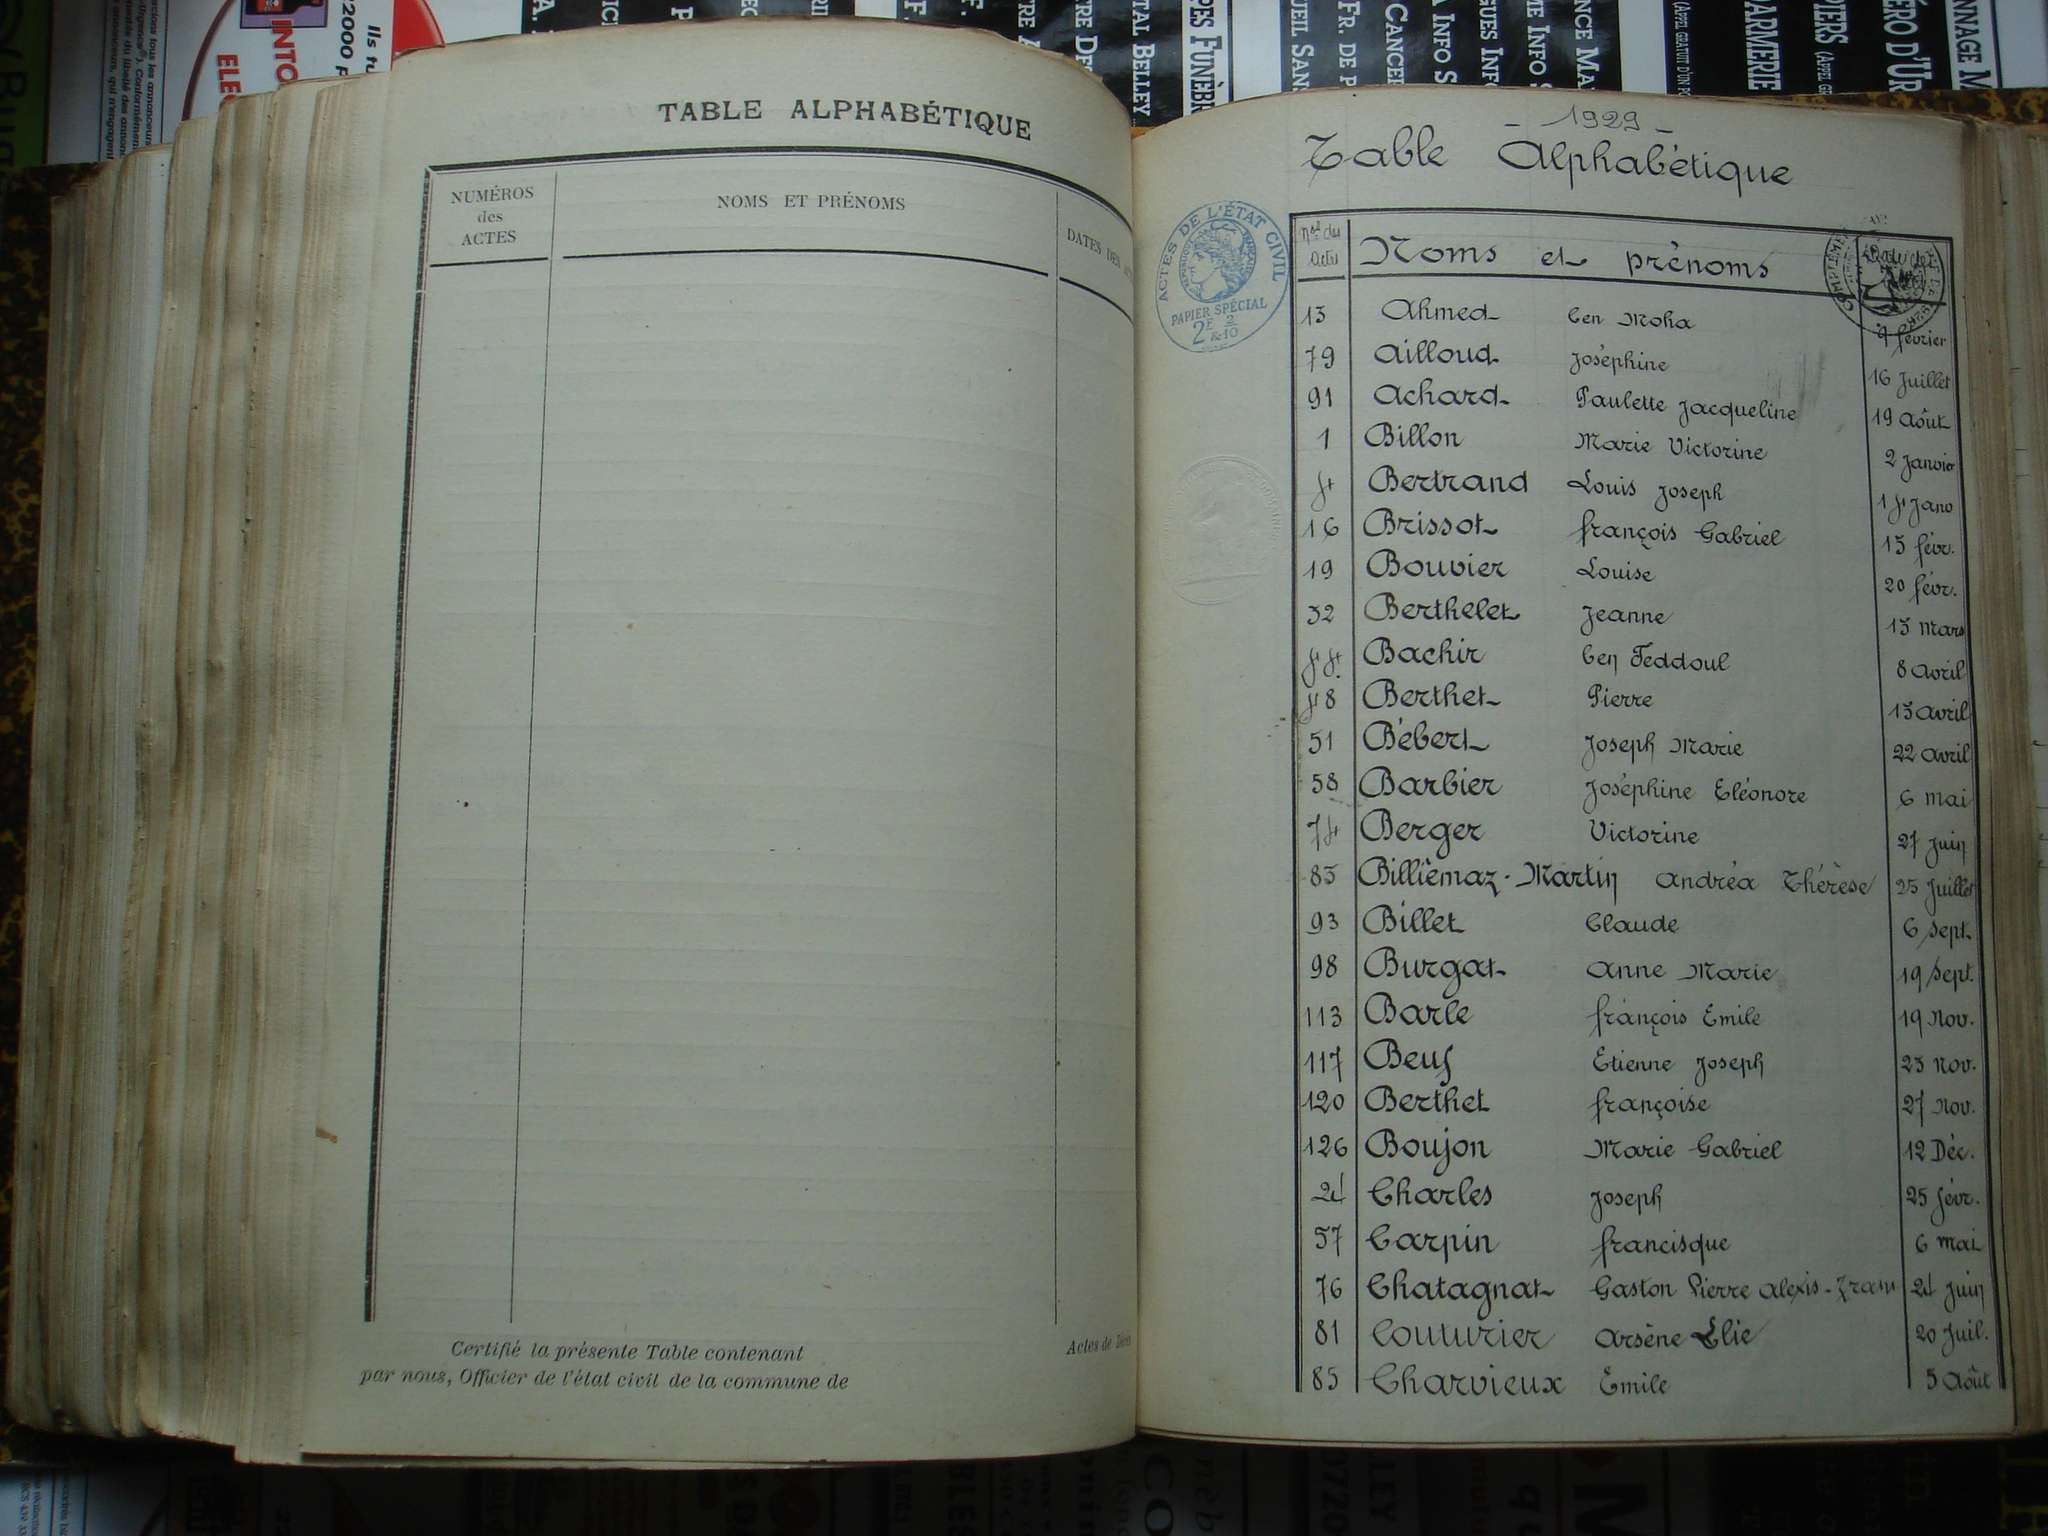 TABLE ALPHABÉTIQUE
NUMÉROS
des
ACTES
NOMS ET PRÉNOMS
DATES DES
Certifié la présente Table contenant
par nous, Officier de l'état civil de la commune de
Actes de
- 1929 -
Table Alphabétique
ACTES DE L'ÉTAT CIVIL
PAPIER SPÉCIAL
2F & 2/10
Nos des Actes Noms et prénoms
13 Ahmed ben Moha 9 février
79 Ailloud Joséphine 16 Juillet
91 Achard Paulette Jacqueline 19 Août
1 Billon Marie Victorine 2 Janvier
4 Bertrand Louis Joseph 14 Janv
16 Brissot François Gabriel 13 févr.
19 Bouvier Louise 20 févr.
32 Berthelet Jeanne 13 Mars
44 Bachir ben Feddoul 8 Avril
48 Berthet Pierre 13 Avril
51 Bébert Joseph Marie 22 Avril
58 Barbier Joséphine Eléonore 6 mai
74 Berger Victorine 27 Juin
83 Billiémaz-Martin Andréa Thérèse 23 Juillet
93 Billet Claude 6 Sept.
98 Burgat Anne Marie 19 Sept.
113 Barle François Emile 19 Nov.
117 Beuf Etienne Joseph 23 Nov.
120 Berthet Françoise 27 Nov.
126 Boujon Marie Gabriel 12 Déc.
24 Charles Joseph 25 févr.
57 Carpin Francisque 6 mai
76 Chatagnat Gaston Pierre Alexis-Frans 24 Juin
81 Couturier Arsène Elie 20 Juil.
85 Charvieux Emile 5 Août